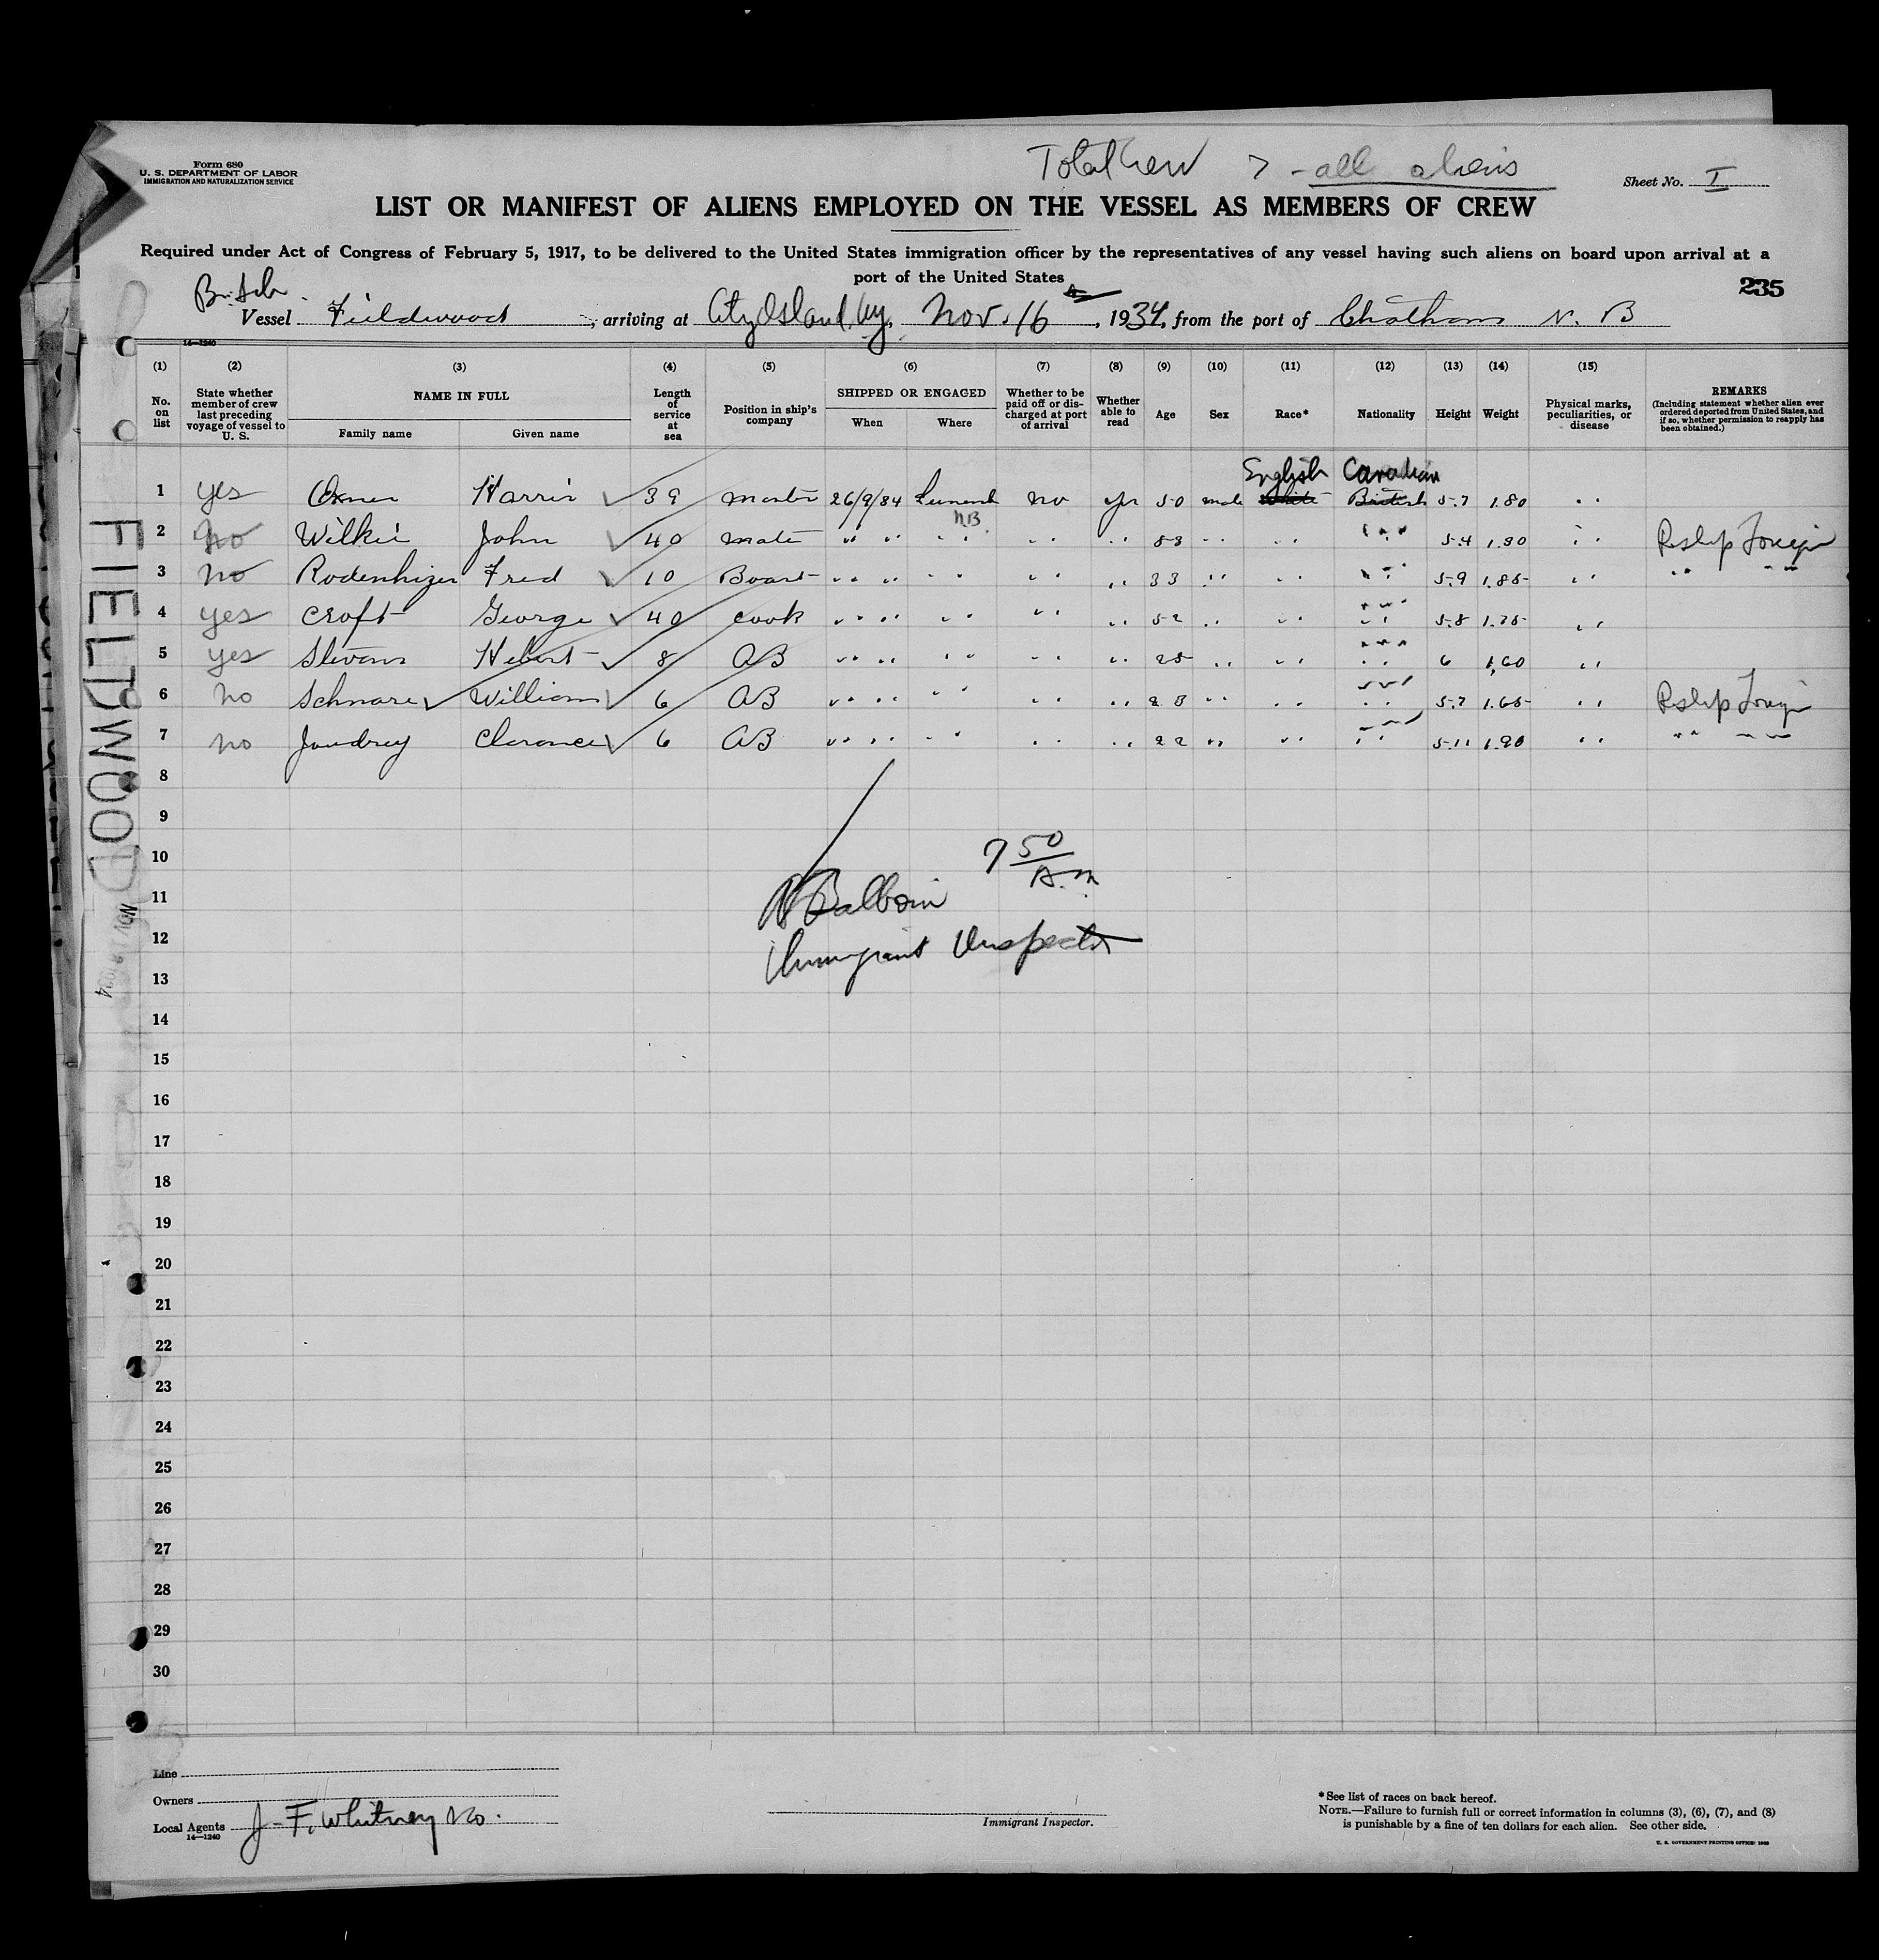 Form 680
U. S. DEPARTMENT OF LABOR
IMMIGRATION AND NATURALIZATION SERVICE
Total Crew 7 - all aliens
Sheet No. I
LIST OR MANIFEST OF ALIENS EMPLOYED ON THE VESSEL AS MEMBERS OF CREW
Required under Act of Congress of February 5, 1917, to be delivered to the United States immigration officer by the representatives of any vessel having such aliens on board upon arrival at a
port of the United States
235
Br. Sch.
Vessel Fieldwood, arriving at City Island, Ny, Nov. 16, 1934, from the port of Chatham N. B
14—1240
(1) (2) (3) (4) (5) (6) (7) (8) (9) (10) (11) (12) (13) (14) (15)
No. on list State whether member of crew last preceding voyage of vessel to U. S. NAME IN FULL Family name Given name Length of service at sea Position in ship's company SHIPPED OR ENGAGED When Where Whether to be paid off or discharged at port of arrival Whether able to read Age Sex Race* Nationality Height Weight Physical marks, peculiarities, or disease REMARKS (Including statement whether alien ever ordered deported from United States, and if so, whether permission to reapply has been obtained.)
English Canadian
1 yes Oxner Harris 39 master 26/9/34 no yes 50 male White British 5-7 180 " "
NB
2 no Wilkie John 40 mate " " " " " " " " 53 " " " " " " 5-4 1.30 " " Reship Foreign
3 no Rodenhizer Fred 10 " " " " " " " " 33 " " " " " " 5-9 1.85 " " " " " "
4 yes Croft George 40 cook " " " " " " " " 52 " " " " " " 5-8 1.75 " "
5 yes Stevens 8 AB " " " " " " " " 25 " " " " " " 6 1.60 " "
6 no Schnare William 6 AB " " " " " " " " 28 " " " " " " 5-7 1.65 " " Reship Foreign
7 no Joudrey Clarence 6 AB " " " " " " " " 22 " " " " " " 5-11 1.90 " " " " " "
8
9
10 7 50 A.m
11
12 Immigrant Inspector
13
14
15
16
17
18
19
20
21
22
23
24
25
26
27
28
29
30
FIELDWOOD
Line
Owners
Local Agents J. F. Whitney Co.
14—1240
Immigrant Inspector.
*See list of races on back hereof.
NOTE.—Failure to furnish full or correct information in columns (3), (6), (7), and (8)
is punishable by a fine of ten dollars for each alien. See other side.